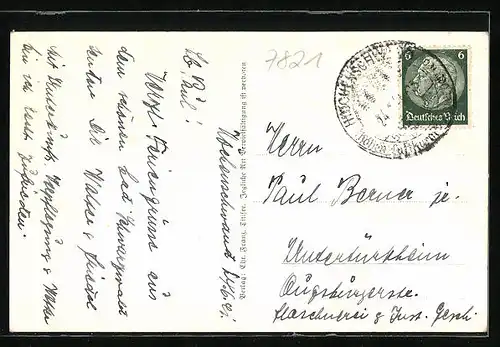 7821
HÖCHENSCHWAND
6 6
Deutsches Reich
Höchenschwand
Lb. Paul!
Herzl. Feriengrüsse aus
dem schönen bad. Schwarzwald
senden Dir Walter & Friedel
Mit Unterkunft, Verpflegung & Wetter
sind wir sehr zufrieden.
Verlag v. Chr. Franz, Titisee. Jegliche Art Vervielfältigung ist verboten
Herrn
Paul Berner jr.
Untertürkheim
Augsburgerstr.
Flaschnerei & Inst. Gesch.